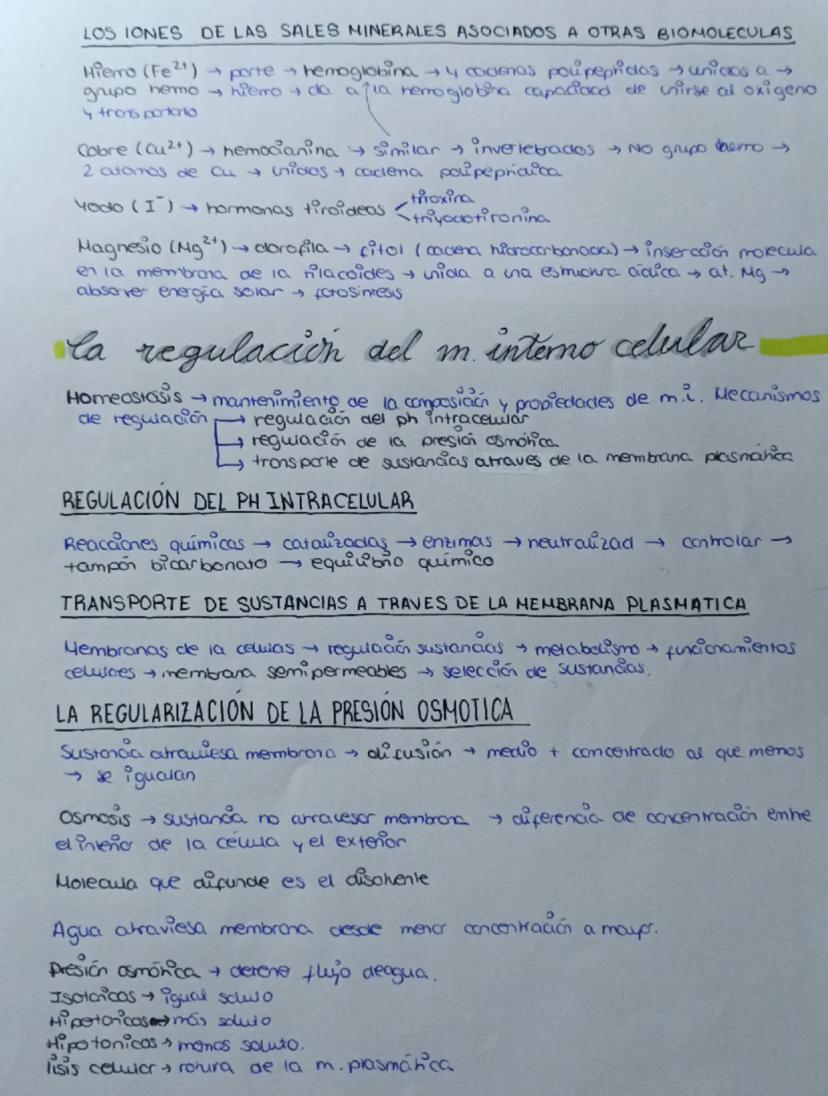 LOS IONES DE LAS SALES MINERALES ASOCIADOS A OTRAS BIOMOLECULAS
Hierro (Fe²⁺) → parte → hemoglobina → 4 cadenas polipeptidas → unidas a →
grupo hemo → hierro → da a la hemoglobina capacidad de unirse al oxigeno
y transportarlo
Cobre (Cu²⁺) → hemocianina → similar → invertebrados → No grupo hemo →
2 atomos de Cu → unidos → cadena polipeptidica
Yodo (I⁻) → hormonas tiroideas < tiroxina
triyodotironina
Magnesio (Mg²⁺) → clorofila → fitol (cadena hidrocarbonada) → inserción molecula
en la membrana de la tilacoides → unida a una estructura cíclica → at. Mg →
absover energía solar → fotosintesis
la regulación del m. interno celular
Homeostasis → mantenimiento de la composición y propiedades de m.i. Mecanismos
de regulación → regulación del ph intracelular
→ regulación de la presión osmótica
→ transporte de sustancias atraves de la membrana plasmática
REGULACIÓN DEL PH INTRACELULAR
Reacciones químicas → catalizadas → enzimas → neutralizad → controlar →
tampón bicarbonato → equilibrio químico
TRANSPORTE DE SUSTANCIAS A TRAVES DE LA MEMBRANA PLASMATICA
Membranas de la celulas → regulación sustancias → metabolismo → funcionamientos
celulares → membrana semipermeables → selección de sustancias.
LA REGULARIZACIÓN DE LA PRESIÓN OSMOTICA
Sustancia atraviesa membrana → difusión → medio + concentrado al que menos
→ se igualan
Osmosis → sustancia no atravesar membrana → diferencia de concentración entre
el interior de la célula y el exterior
Molecula que difunde es el disolvente
Agua atraviesa membrana desde menor concentración a mayor.
Presión osmótica → detene flujo de agua.
Isotonicos → igual soluto
Hipetonicos → más soluto
Hipotonicos → menos soluto.
lisis celular → rotura de la m. plasmática